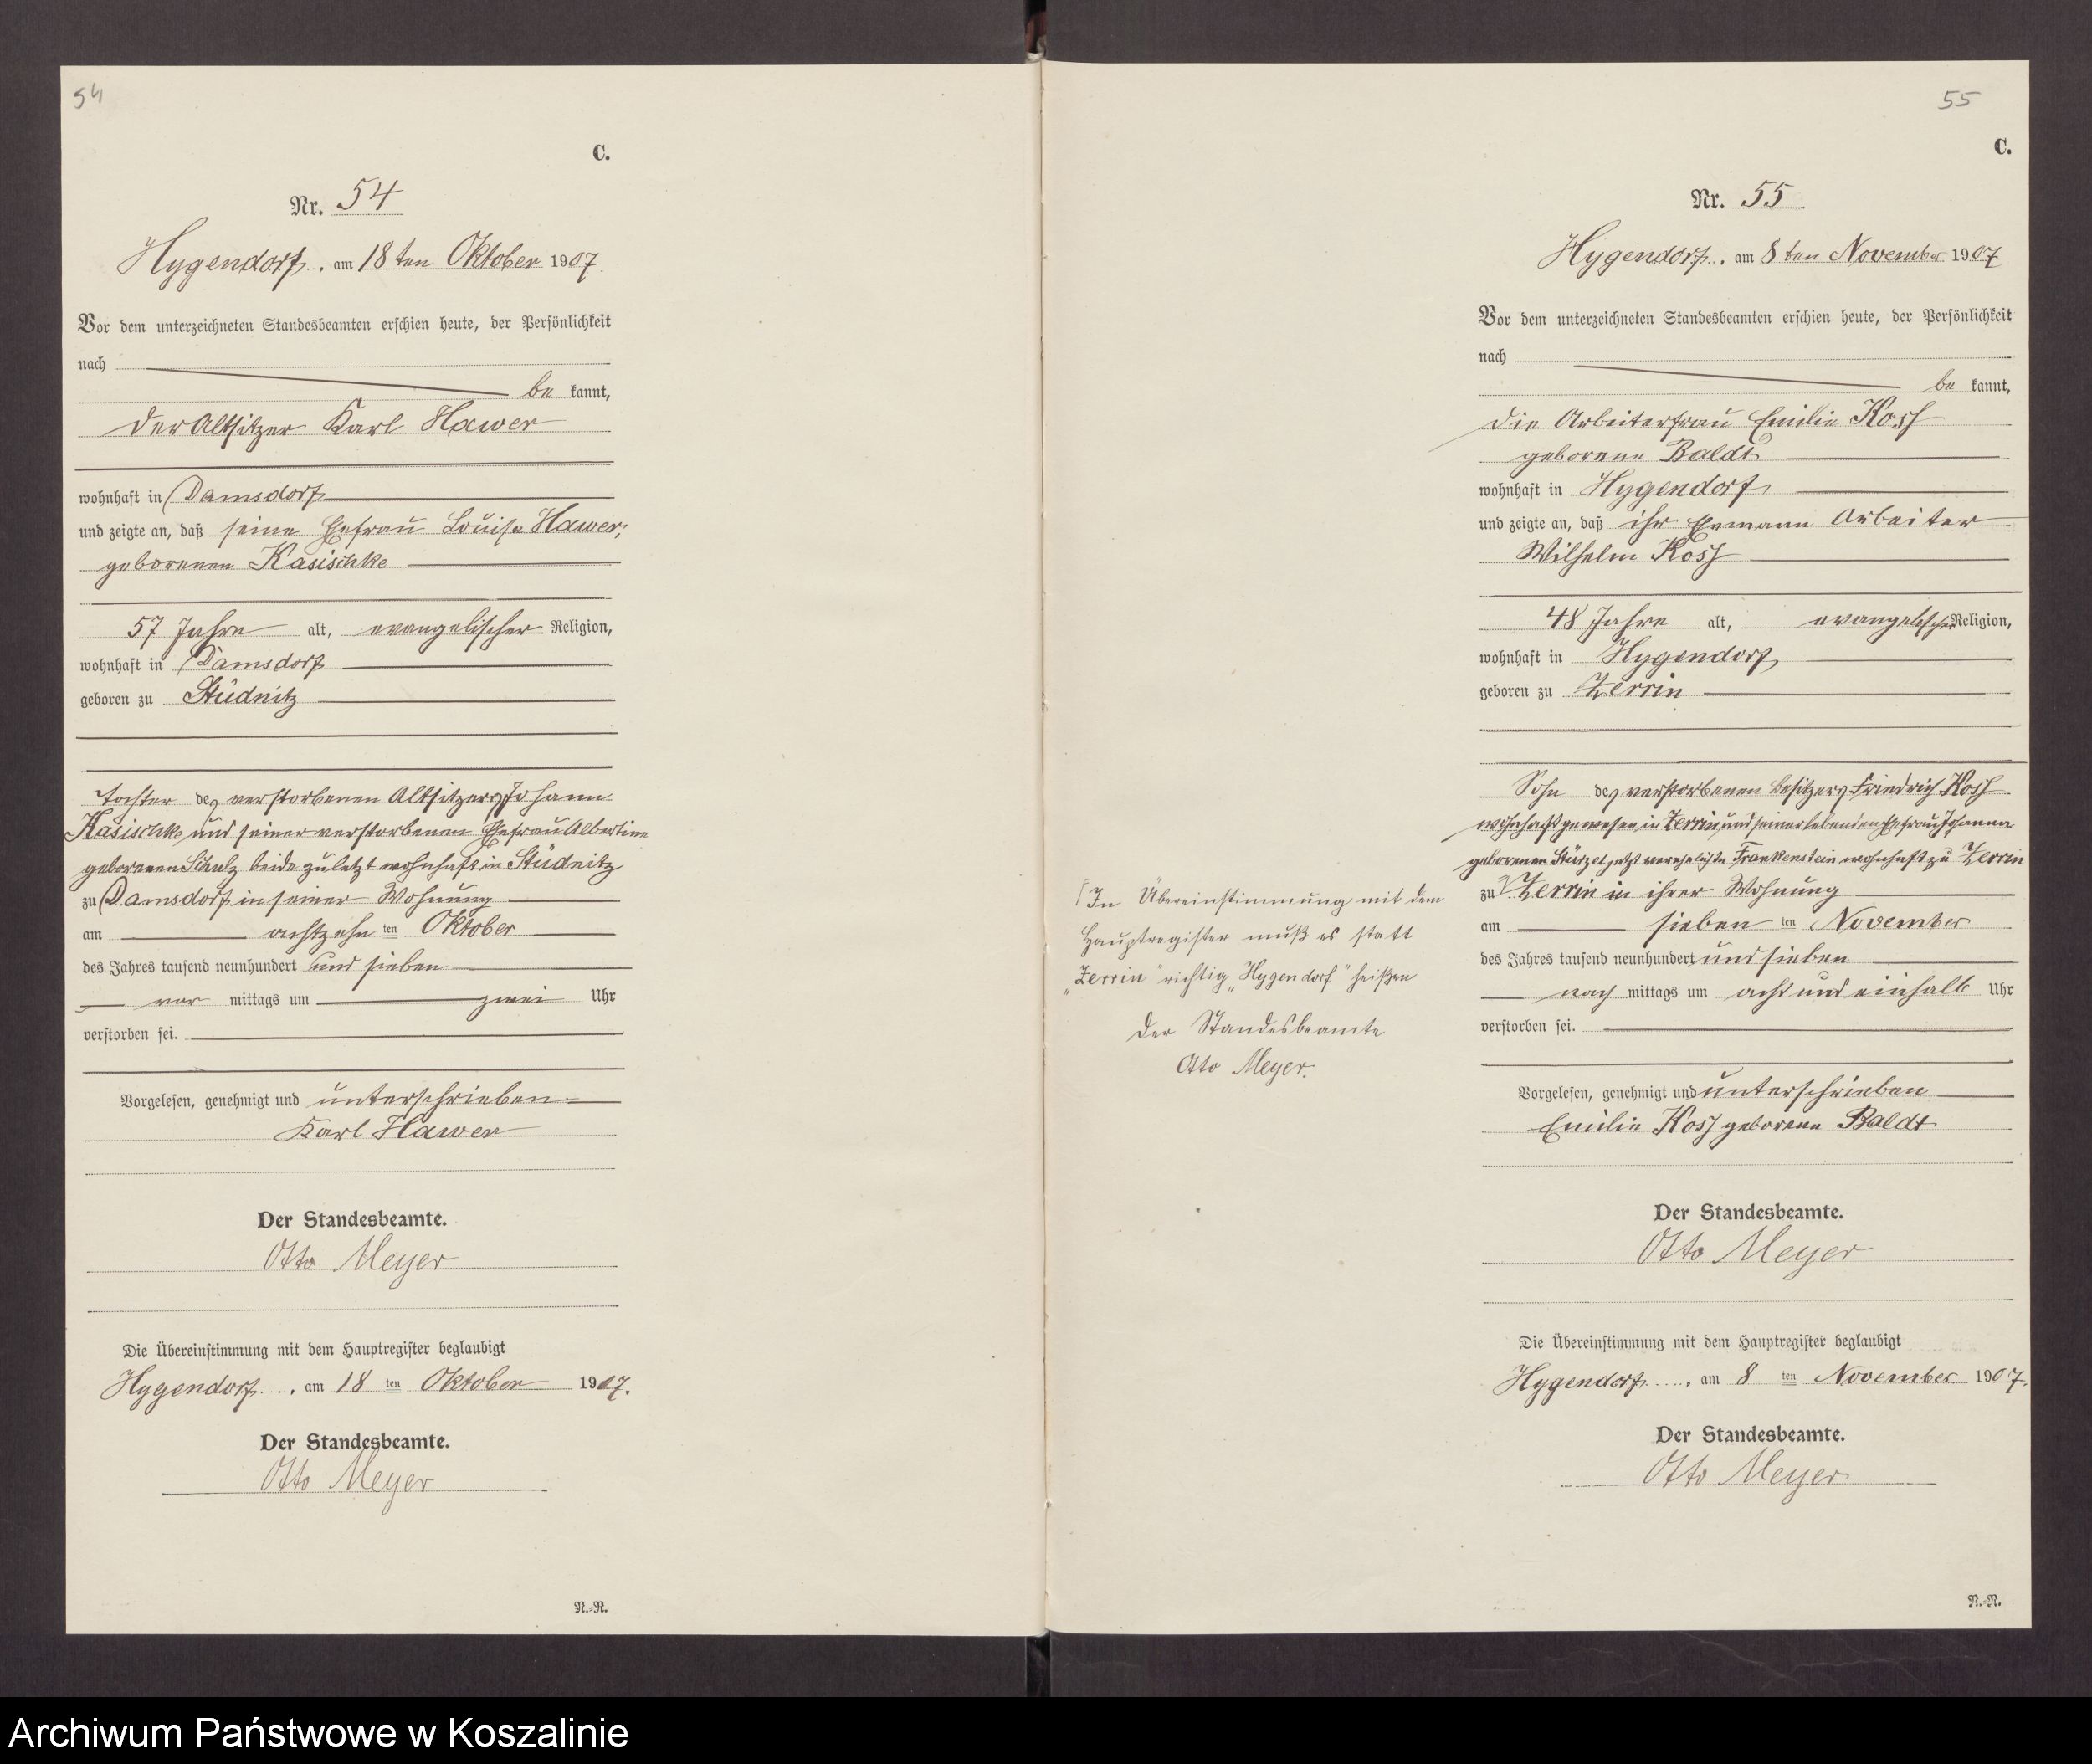 54
C.
Nr. 54
Hygendorf, am 18ten Oktober 1907.
Vor dem unterzeichneten Standesbeamten erschien heute, der Persönlichkeit
nach
be kannt,
der Altsitzer Karl Hawer
wohnhaft in Damsdorf
und zeigte an, daß seine Ehefrau Louise Hawer,
geborenen Kasischke
57 Jahre alt, evangelischer Religion,
wohnhaft in Damsdorf
geboren zu Stüdnitz
Tochter des verstorbenen Altsitzers Johann
Kasischke und seiner verstorbenen Ehefrau Albertine
geborenen Schulz beide zuletzt wohnhaft in Stüdnitz
zu Damsdorf in seiner Wohnung
am achtzehn ten Oktober
des Jahres tausend neunhundert und sieben
vor mittags um zwei Uhr
verstorben sei.
Vorgelesen, genehmigt und unterschrieben
Karl Hawer
Der Standesbeamte.
Otto Meyer
Die Übereinstimmung mit dem Hauptregister beglaubigt
Hygendorf, am 18 ten Oktober 1907.
Der Standesbeamte.
Otto Meyer
N.-N.
55
C.
Nr. 55
Hygendorf, am 8ten November 1907
Vor dem unterzeichneten Standesbeamten erschien heute, der Persönlichkeit
nach
be kannt,
die Arbeiterfrau Emilie Koss
geborene Baldt
wohnhaft in Hygendorf
und zeigte an, daß ihr Ehemann Arbeiter
Wilhelm Koss
48 Jahre alt, evangelischer Religion,
wohnhaft in Hygendorf
geboren zu Zerrin
Sohn des verstorbenen Besitzers Friedrich Koss
wohnhaft gewesen in Zerrin und seiner lebenden Ehefrau Johanna
geborenen Stürzel, jetzt verehelichte Frankenstein wohnhaft zu Zerrin
zu Zerrin in ihrer Wohnung
am sieben ten November
des Jahres tausend neunhundert und sieben
nach mittags um acht und einhalb Uhr
verstorben sei.
In Übereinstimmung mit dem
Hauptregister muß es statt
„Zerrin" richtig „Hygendorf" heißen
Der Standesbeamte
Otto Meyer.
Vorgelesen, genehmigt und unterschrieben
Emilie Koss geborene Baldt
Der Standesbeamte.
Otto Meyer
Die Übereinstimmung mit dem Hauptregister beglaubigt
Hygendorf, am 8 ten November 1907.
Der Standesbeamte.
Otto Meyer
N.-N.
Archiwum Państwowe w Koszalinie